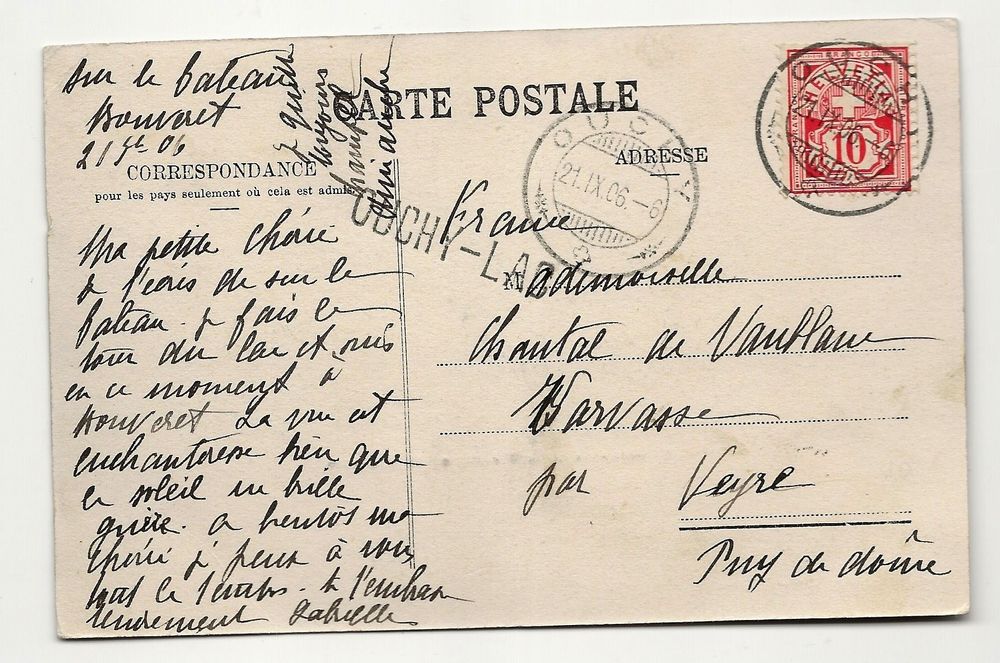 sur le bateau
Bouveret
21 7bre 06
CARTE POSTALE
CORRESPONDANCE
pour les pays seulement où cela est admis
ADRESSE
toujours
FRANCO
HELVETIA
10
OUCHY
21.IX.06.-6
OUCHY-LAC
Ma petite chérie
je t'écris de sur le
bateau. je fais le
tour du lac et suis
en ce moment à
Bouveret La vue est
enchanteresse bien que
le soleil ne brille
guère. à bientôt ma
chérie je pense à vous
tout le temps. je t'embrasse
tendrement Gabrielle
France
Mademoiselle
Chantal de Vaublanc
par Veyre
Puy de dôme